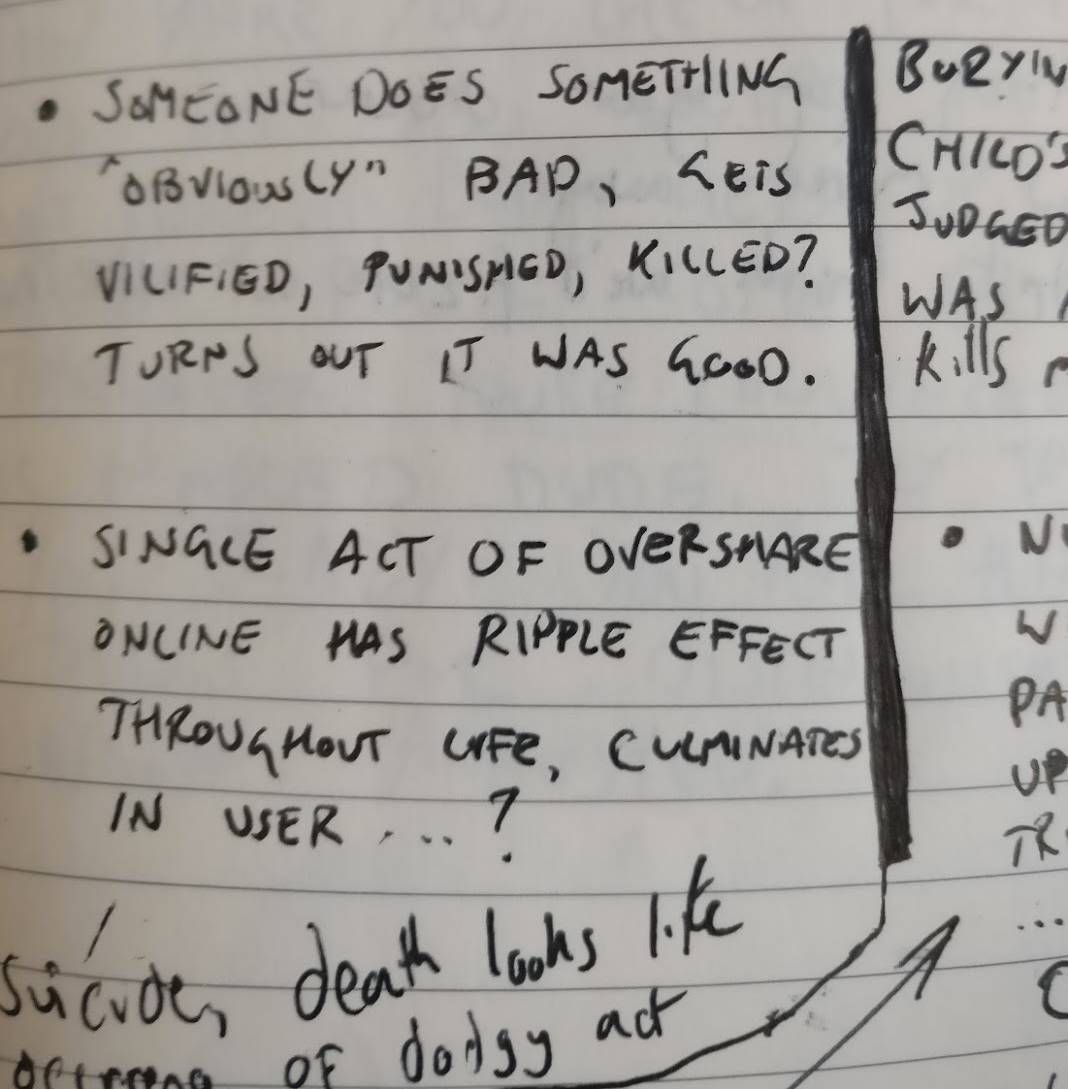 • SOMEONE DOES SOMETHING
"OBVIOUSLY" BAD, GETS
VILIFIED, PUNISHED, KILLED?
TURNS OUT IT WAS GOOD.
• SINGLE ACT OF OVERSHARE
ONLINE HAS RIPPLE EFFECT
THROUGHOUT LIFE, CULMINATES
IN USER ...?
Suicide, death looks like
OF dodgy act
BURYIN
CHILD'S
JUDGED
WAS
Kills
•
W
PA
UP
TR
...